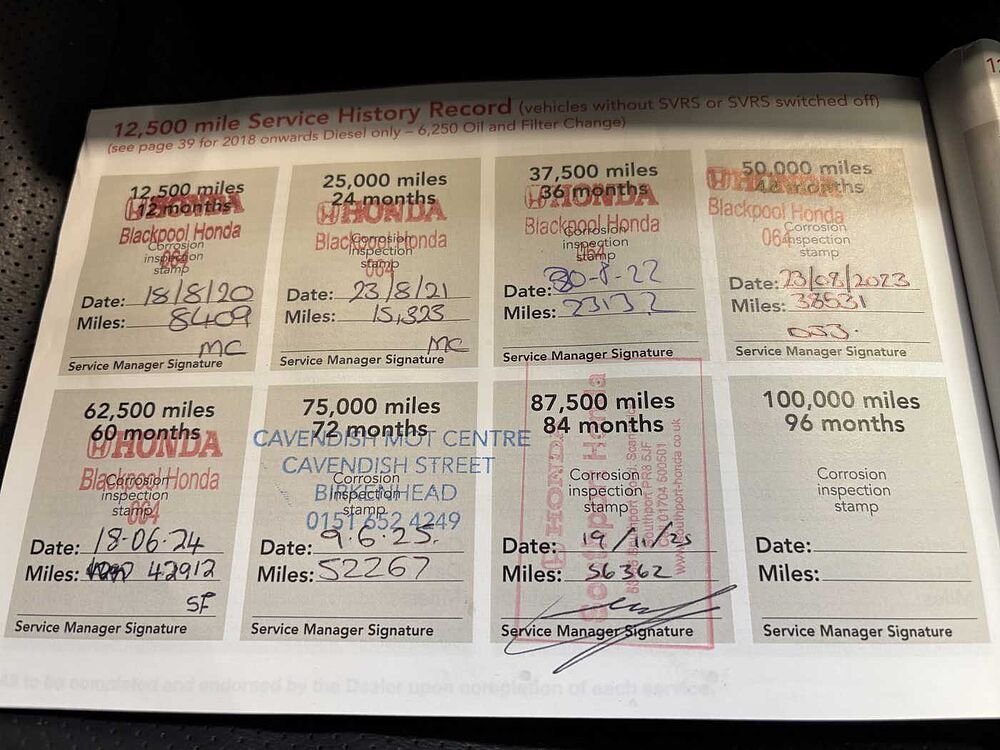 12,500 mile Service History Record (vehicles without SVRS or SVRS switched off)
(see page 39 for 2018 onwards Diesel only – 6,250 Oil and Filter Change)
12,500 miles
12 months
HONDA
Blackpool Honda
Corrosion
inspection
stamp
064
Date: 18/8/20
Miles: 8409
MC
Service Manager Signature
25,000 miles
24 months
HONDA
Blackpool Honda
Corrosion
inspection
stamp
064
Date: 23/8/21
Miles: 15,323
MC
Service Manager Signature
37,500 miles
36 months
HONDA
Blackpool Honda
Corrosion
inspection
stamp
064
Date: 30-8-22
Miles: 23132
Service Manager Signature
50,000 miles
48 months
HONDA
Blackpool Honda
064
Corrosion
inspection
stamp
Date: 23/08/2023
Miles: 38531
Service Manager Signature
62,500 miles
60 months
HONDA
Blackpool Honda
Corrosion
inspection
stamp
064
Date: 18-06-24
Miles: 42912
SF
Service Manager Signature
75,000 miles
72 months
CAVENDISH MOT CENTRE
CAVENDISH STREET
BIRKENHEAD
0151 652 4249
Corrosion
inspection
stamp
Date: 9.6.25.
Miles: 52267
Service Manager Signature
87,500 miles
84 months
HONDA
Southport Honda
Southport PR8 5JF
01704 500501
www.southport-honda.co.uk
Corrosion
inspection
stamp
Date: 19/11/25
Miles: 56362
Service Manager Signature
100,000 miles
96 months
Corrosion
inspection
stamp
Date:
Miles:
Service Manager Signature
to be completed and endorsed by the Dealer upon completion of each service.